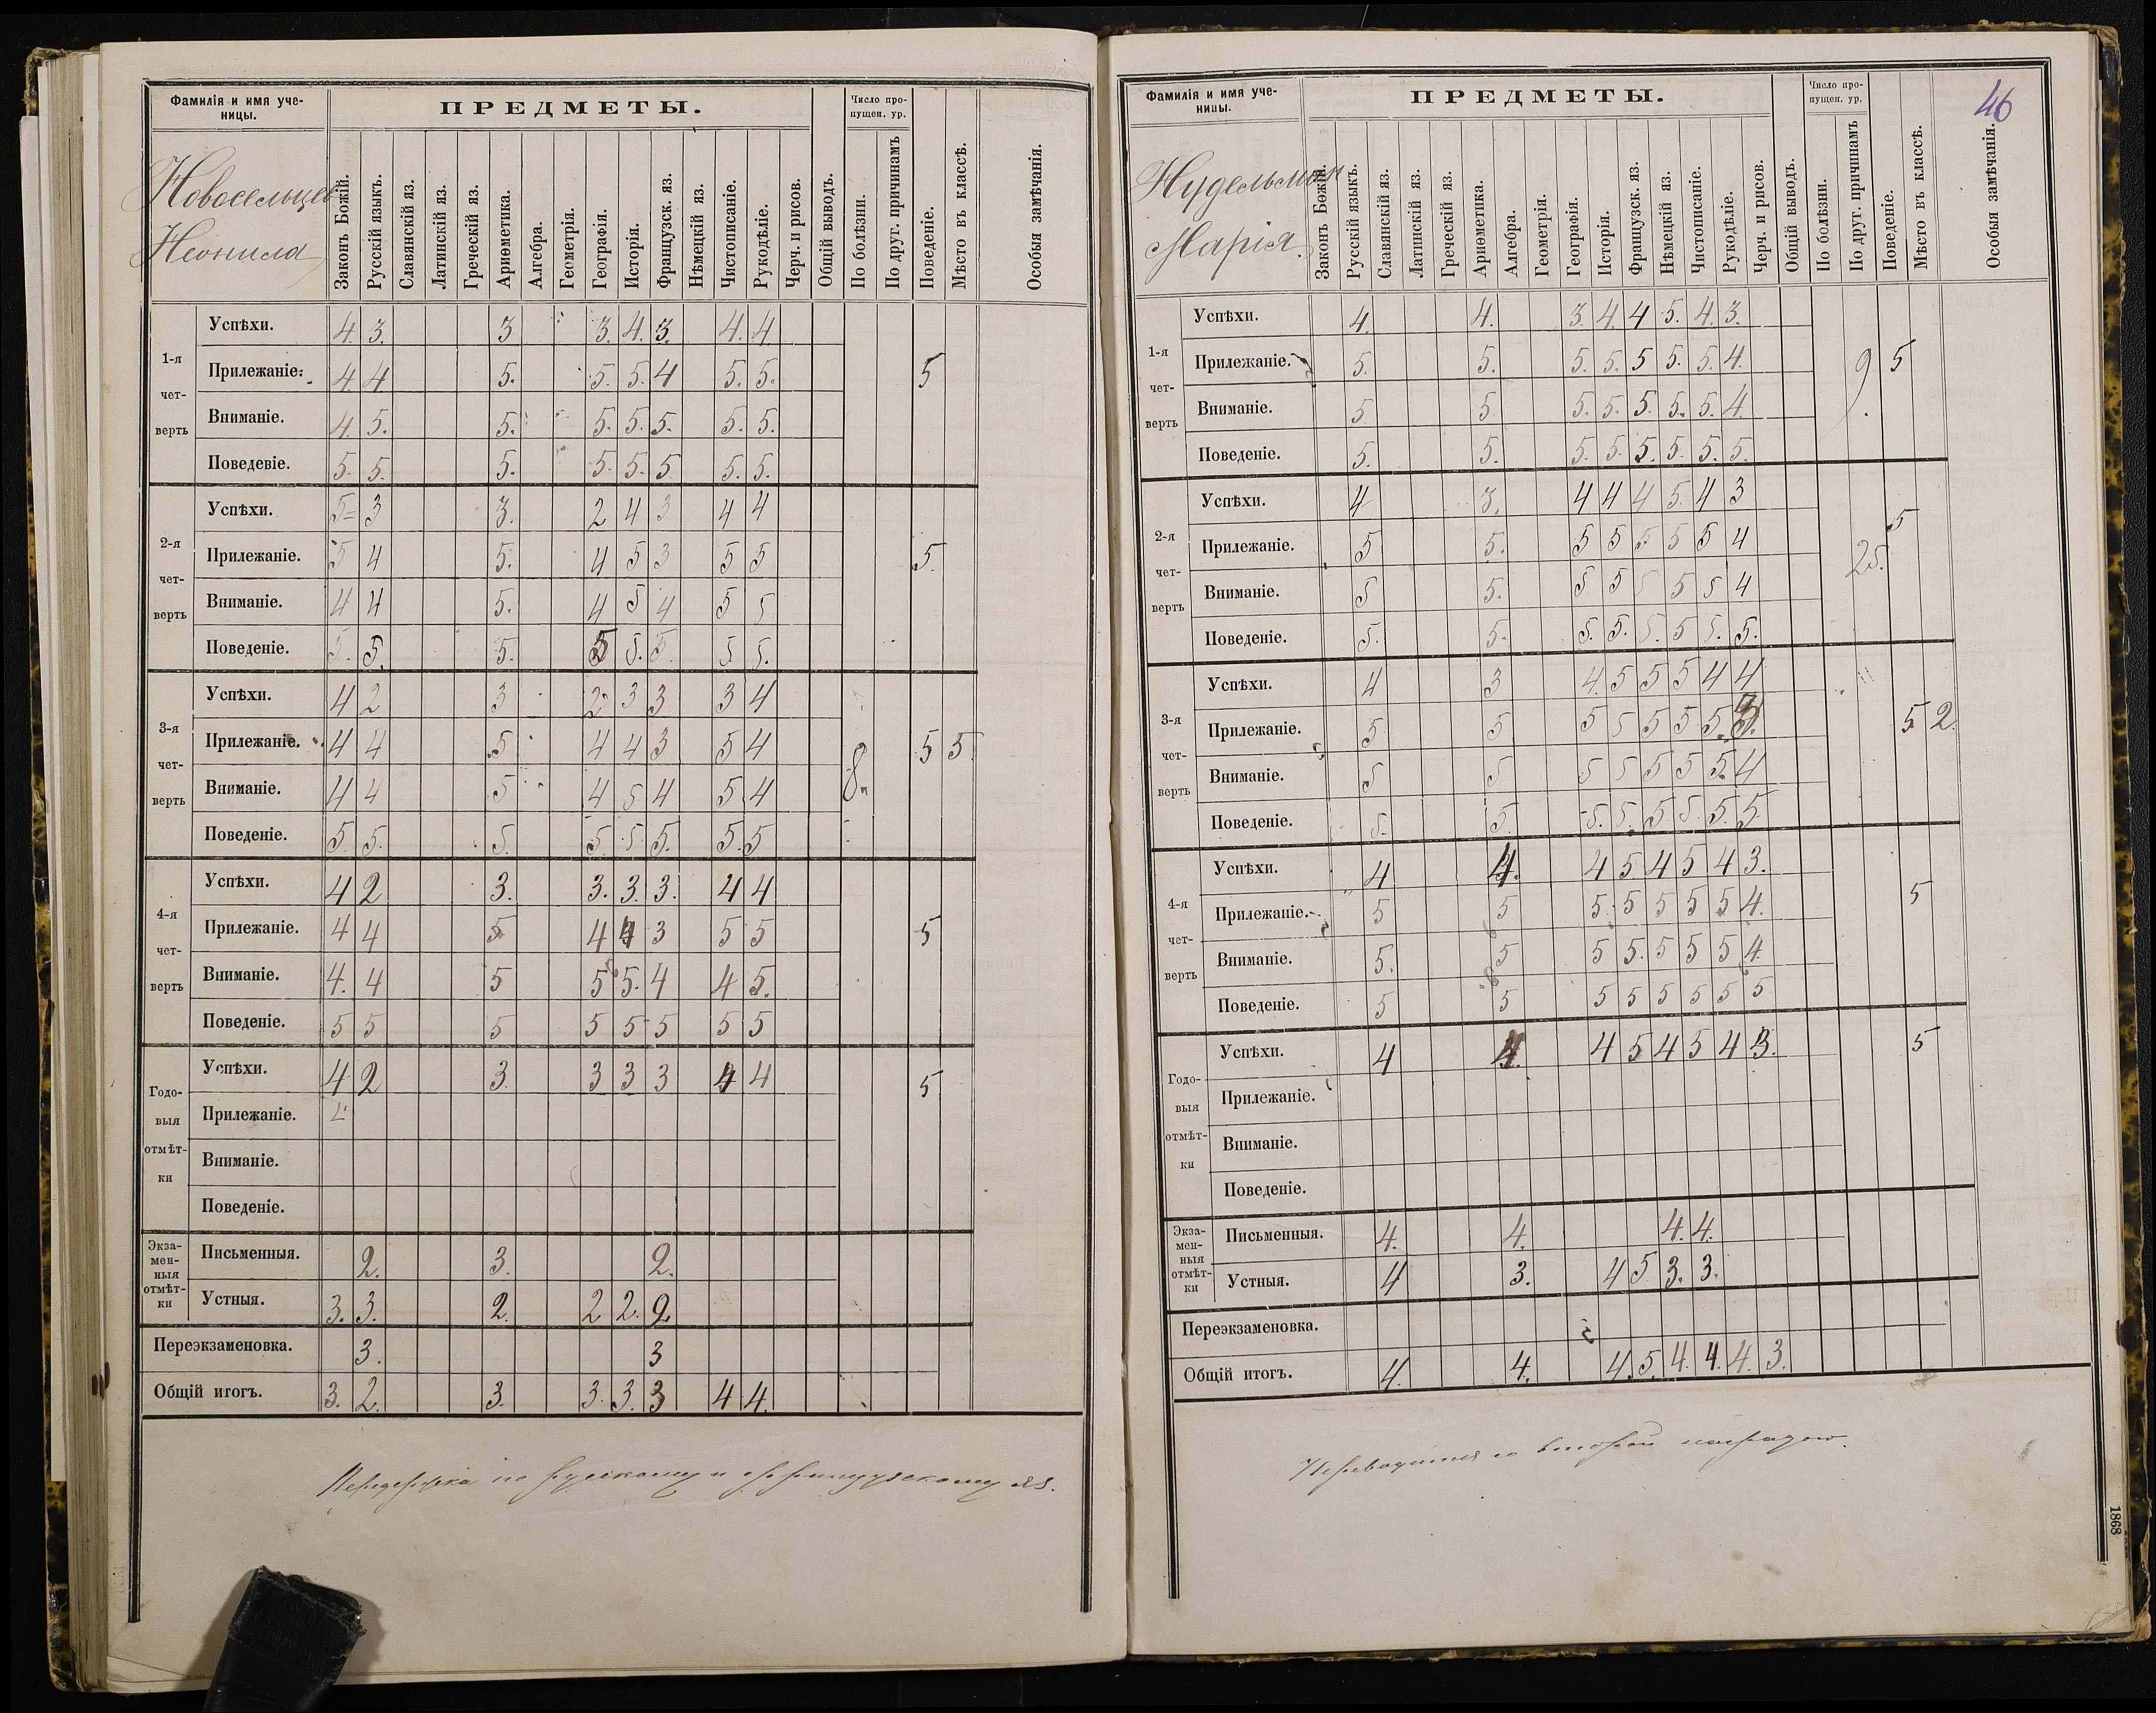 Фамилія и имя уче-
ницы.
ПРЕДМЕТЫ.
Число про-
пущен. ур.
Новосельцев
Неонила
Законъ Божій.
Русскій языкъ.
Славянскій яз.
Латинскій яз.
Греческій яз.
Ариөметика.
Алгебра.
Геометрія.
Географія.
Исторія.
Французск. яз.
Нѣмецкій яз.
Чистописаніе.
Рукодѣліе.
Черч. и рисов.
Общій выводъ.
По болѣзни.
По друг. причинамъ
Поведеніе.
Мѣсто въ классѣ.
Особыя замѣчанія.
1-я чет-верть
Успѣхи. 4. 3. 3 3. 4. 3. 4. 4
Прилежаніе. 4. 4 5. 5. 5. 4 5. 5. 5
Вниманіе. 4. 5. 5. 5. 5. 5. 5. 5.
Поведевіе. 5. 5. 5. 5. 5. 5 5. 5.
2-я чет-верть
Успѣхи. 5= 3 3. 2 4 3 4 4
Прилежаніе. 5 4 5. 4 5 3 5 5 5.
Вниманіе. 4 4 5. 4 5 4 5 5
Поведеніе. 5. 5. 5. 5 5. 5. 5. 5.
3-я чет-верть
Успѣхи. 4 2 3 2 3 3 3 4
Прилежаніе. 4 4 5 4 4 3 5 4 8 5 5.
Вниманіе. 4 4 5 4 5 4 5 4
Поведеніе. 5. 5. 5. 5. 5. 5. 5. 5
4-я чет-верть
Успѣхи. 4 2 3. 3. 3. 3. 4 4
Прилежаніе. 4 4 5 4 4 3 5 5 5
Вниманіе. 4. 4 5 5 5. 4 4 5.
Поведеніе. 5 5 5 5 5 5 5 5
Годо-выя отмѣт-ки
Успѣхи. 4 2 3. 3 3 3 4 4 5
Прилежаніе.
Вниманіе.
Поведеніе.
Экза-мен-ныя отмѣт-ки
Письменныя. 2. 3. 2.
Устныя. 3. 3. 2. 2 2. 2.
Переэкзаменовка. 3. 3
Общій итогъ. 3. 2. 3. 3. 3. 3 4 4.
Передержка по русскому и французскому яз.
46
Фамилія и имя уче-
ницы.
ПРЕДМЕТЫ.
Число про-
пущен. ур.
Нудельман
Марія.
Законъ Божій.
Русскій языкъ.
Славянскій яз.
Латинскій яз.
Греческій яз.
Ариөметика.
Алгебра.
Геометрія.
Географія.
Исторія.
Французск. яз.
Нѣмецкій яз.
Чистописаніе.
Рукодѣліе.
Черч. и рисов.
Общій выводъ.
По болѣзни.
По друг. причинамъ
Поведеніе.
Мѣсто въ классѣ.
Особыя замѣчанія.
1-я чет-верть
Успѣхи. 4. 4. 3. 4. 4 5. 4. 3.
Прилежаніе. 5. 5. 5. 5. 5 5. 5. 4. 9. 5
Вниманіе. 5 5 5. 5. 5. 5. 5. 4.
Поведеніе. 5. 5. 5. 5. 5. 5. 5. 5.
2-я чет-верть
Успѣхи. 4 3. 4 4 4 5. 4 3
Прилежаніе. 5 5. 5 5 5 5 5 4 25. 5
Вниманіе. 5 5. 5 5 5 5 5 4
Поведеніе. 5. 5. 5. 5. 5. 5 5. 5.
3-я чет-верть
Успѣхи. 4 3 4. 5 5 5 4 4
Прилежаніе. 5 5 5 5 5 5 5. 3. 5 2.
Вниманіе. 5 5 5 5 5 5 5. 4
Поведеніе. 5. 5. 5. 5. 5. 5. 5. 5.
4-я чет-верть
Успѣхи. 4 4. 4 5 4 5 4 3.
Прилежаніе. 5 5 5 5 5 5 5 4. 5
Вниманіе. 5. 5 5 5. 5 5 5 4.
Поведеніе. 5 5 5 5 5 5 5 5
Годо-выя отмѣт-ки
Успѣхи. 4 4. 4 5 4 5 4 3. 5
Прилежаніе.
Вниманіе.
Поведеніе.
Экза-мен-ныя отмѣт-ки
Письменныя. 4. 4. 4. 4.
Устныя. 4 3. 4 5 3. 3.
Переэкзаменовка.
Общій итогъ. 4. 4. 4. 5. 4. 4. 4. 3.
Переводится со второй наградою.
1868